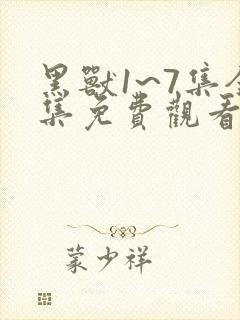 黑獸1~7集全
集免費觀看
蒙少祥